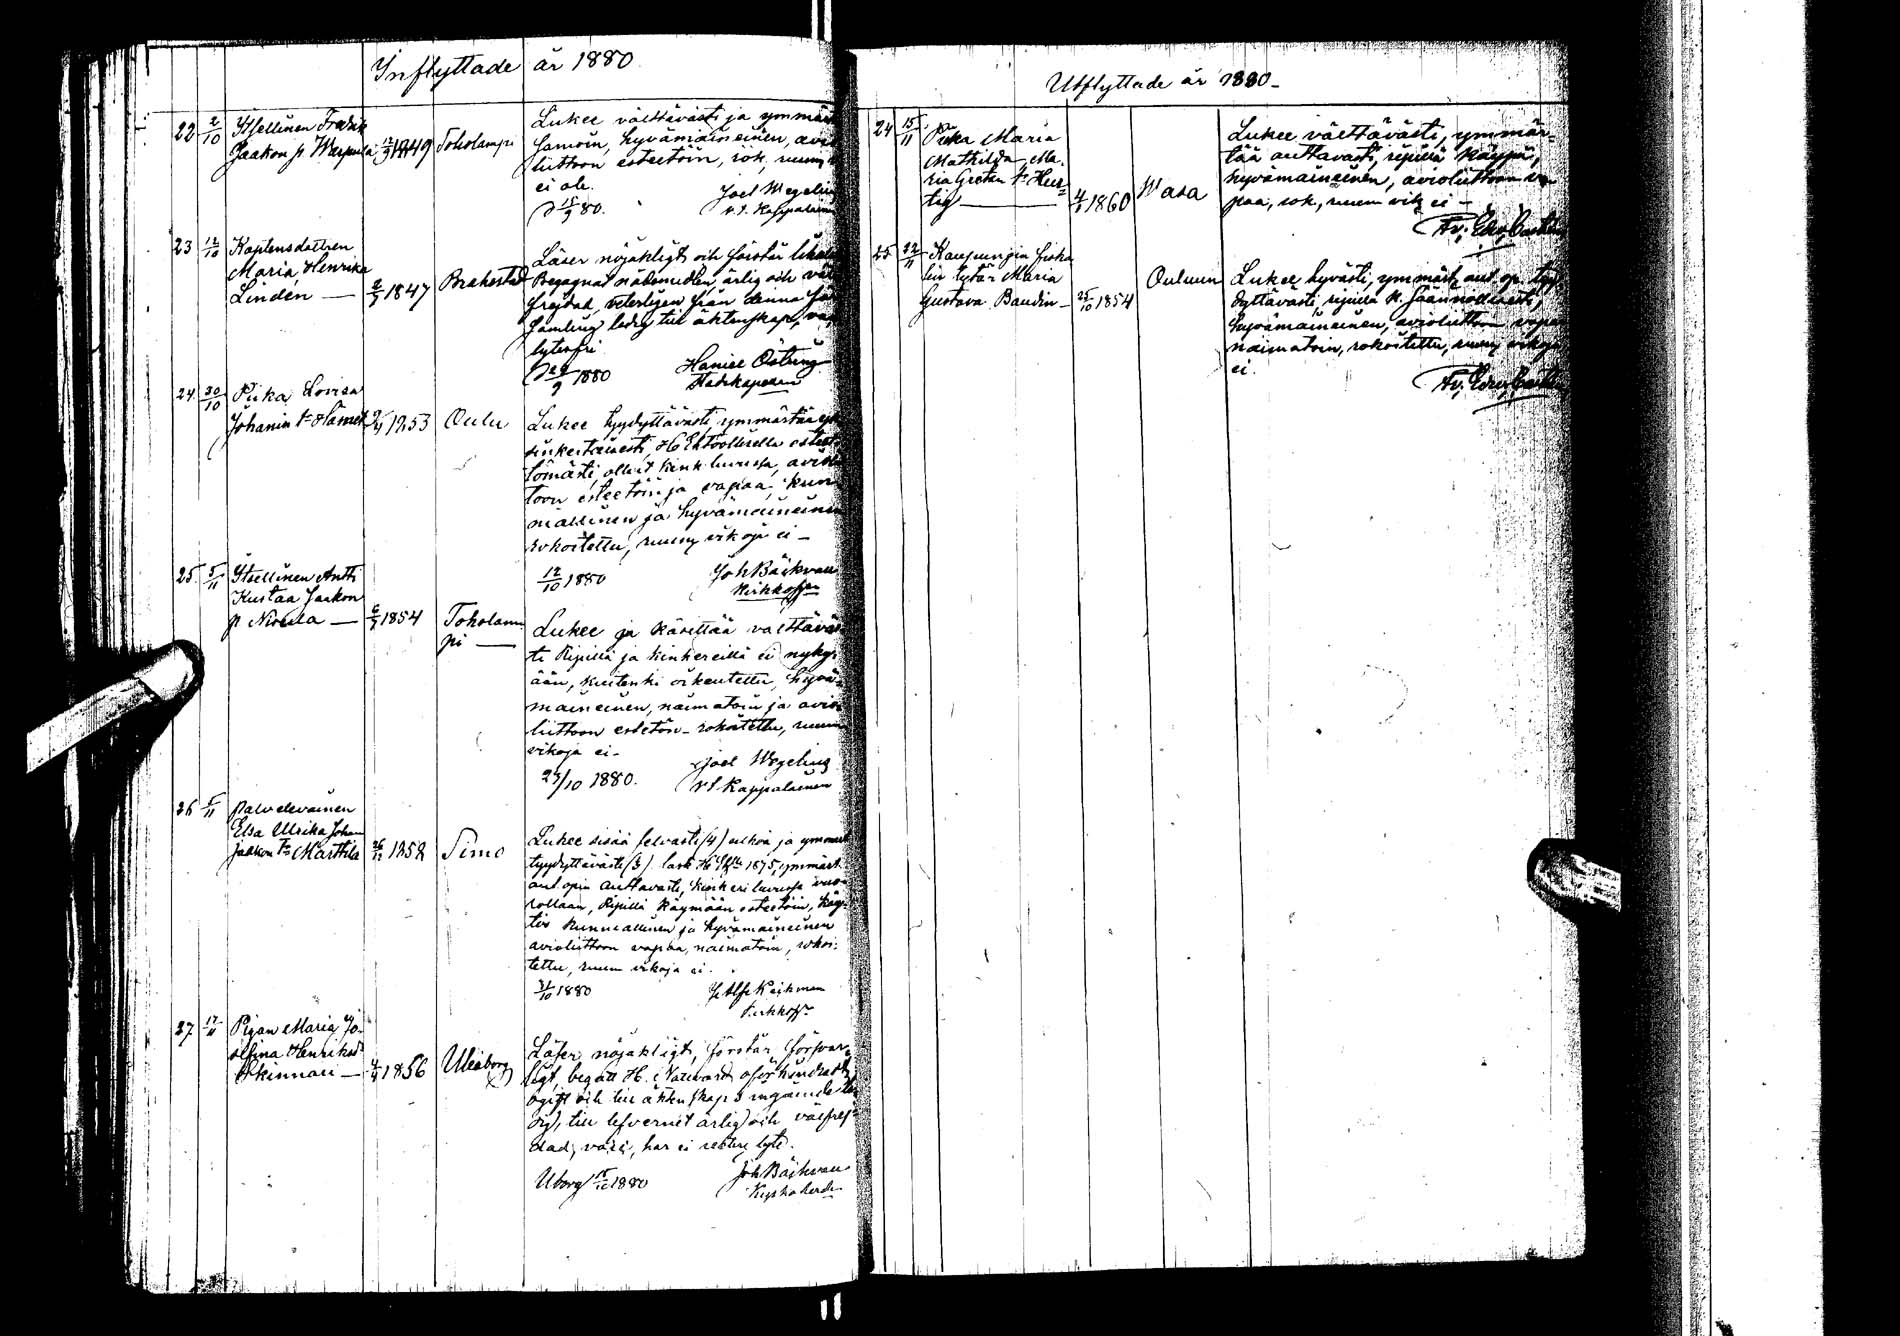 Inflyttade år 1880
22 2/10 Itsellinen Fredrik
Jaakon p. Warpula 1849 Toholampi
Lukee välttävästi ja ymmärt
hyvämaineinen, avio
liittoon esteetöin, rok, ruum
ei ole.
15/9 80. Joel Wegelius
v.t. Kappalainen
23 12/10 Kaptensdottren
Maria Henrika
Lindén — 1847 Brahestad
Läser nöjaktigt och förstår
Begagnat nådemedlen, ärlig och väl
frejdad, veterligen från denna för
samling ledig till äktenskap, vac,
lytesfri
1880 Östring
Stadskapellan
24 30/10 Piika Lovisa
Johanin t. 1853 Oulu
Lukee tyydyttävästi ymmärtää yk
sinkertaisesti, H. Ehtoollisella esteet
tömästi, ollut kink. luvussa, avio
toon esteetöin ja vapaa, kun
niallinen ja hyvämaineinen
rokoitettu, ruum vikoja ei —
12/10 1880 Joh Bäckman
Kirkkoh
25 5/11 Itsellinen Antti
Kustaa Jaakon
p Nivala — 1854 Toholam
pi —
Lukee ja käsittää välttäväs
ti Ripillä ja kinkereillä ei nyky
ään, kuitenki oikeutettu, hyvä-
maineinen, naimatoin ja avio
liittoon esteetön - rokoitettu, ruum
vikoja ei -
29/10 1880. Joel Wegelius
v.t. Kappalainen
26 5/11 Palvelevainen
Elsa Ulrika Johan
Jaakon t. Marttila 1858 Simo
Lukee sisää selvästi (4) ulkoa ja ymmärt
tyydyttävästi (3) lask H. 1875, ymmärt
aut. opin auttavasti, kinkeri luvussa vuo
rollaan, Ripillä käymään esteetöin, käy-
tös kunniallinen ja hyvämaineinen
avioliittoon vapaa, naimatoin, rokoi-
tettu, ruum vikoja ei.
31/10 1880
Kirkkoh
27 17/11 Pigan Maria Jo-
sefina Henriksd
Skinnari — 1856 Uleåborg
Läser nöjaktigt, förstår försvar-
ligt, begått H. Nattvard oförhindradt,
ogift och till äktenskaps ingående led
ig, till lefvernet ärlig och välfrej-
dad, vacc, har ei lyte.
Uborg 1880 Joh Bäckman
Kyrkoherde
Utflyttade år 1880 -
24 15/11 Piika Maria
Mathilda Ma-
ria Gretan t. Hur-
tig — 1860 Wasa
Lukee välttävästi, ymmär-
tää auttavasti, ripillä käypä,
hyvämaineinen, avioliittoon va
paa, rok, ruum vik ei —
25 22/11 Kaupungin fiska
lin tytär Maria
Gustava Baudin — 25/10 1854 Ouluun
Lukee hyvästi, ymmärt aut. op. tyy
dyttävästi, ripillä k. säännöllisesti,
hyvämaineinen, avioliittoon vapaa
naimatoin, rokoitettu, ruum vikoja
ei.